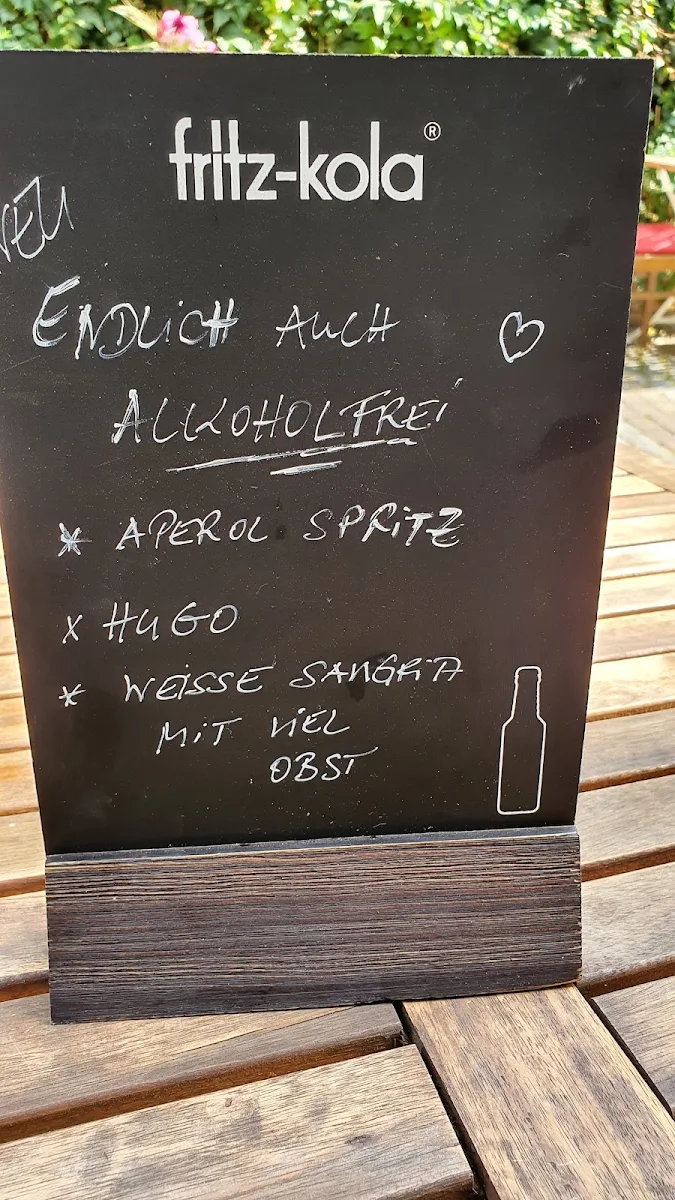 fritz-kola®
NEU
ENDLiCH AUCH
ALKOHOLFREi
* APEROL SPRiTZ
x HUGO
* WEISSE SANGRiA
MiT ViEL
OBST